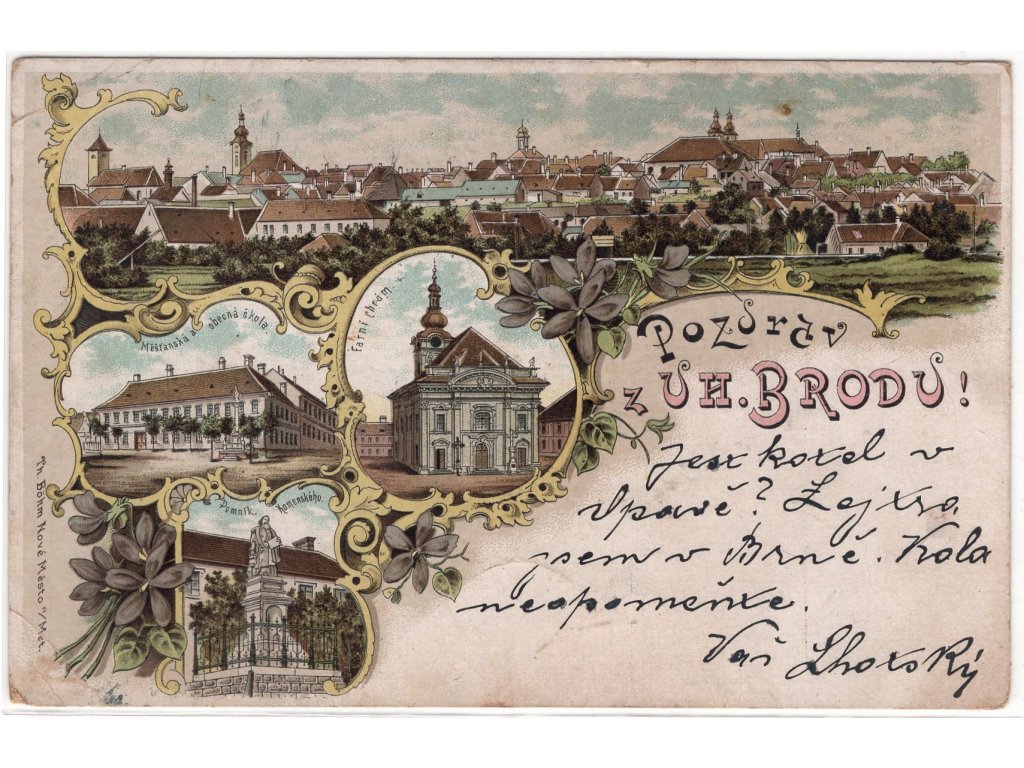 Měšťanská a obecná škola
Farní chrám.
Pomník Komenského.
Pozdrav
z UH. BRODU!
v
Opavě?
jsem v Brně. Kola
neopomeňte.
Váš Lhotský
Th. Böhm Nové Město n/Met.